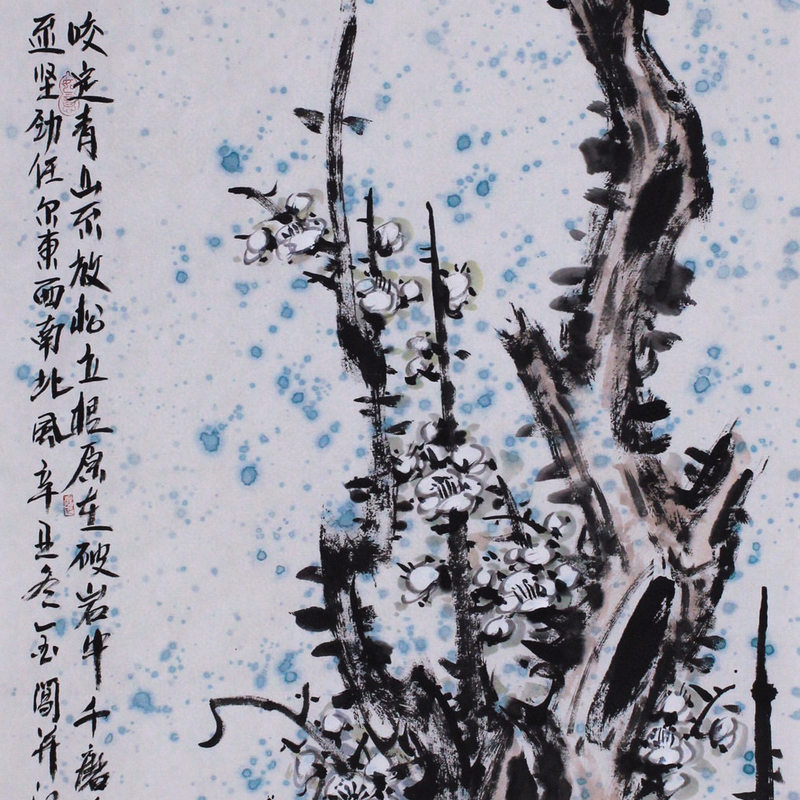 咬定青山不放松立根原在破岩中千磨
还坚劲任尔東西南北風辛丑冬